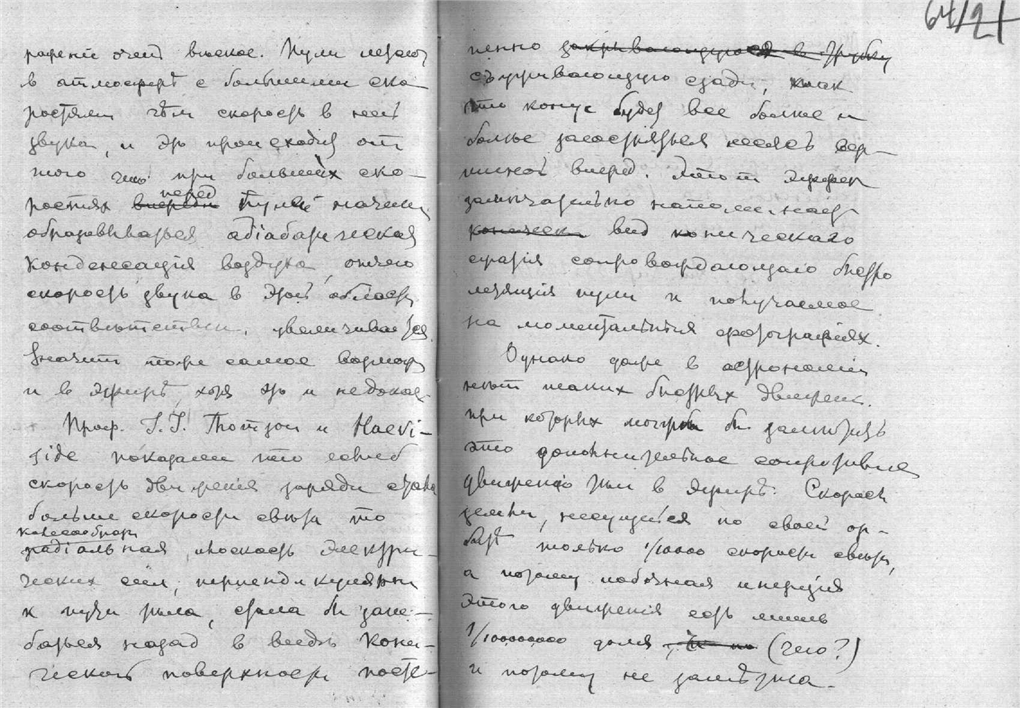 64/21
очень высокое. Пули летают
в атмосфере с большими ско-
ростями чѣм скорость в ней
звука, и это происходит от
того что при больших ско-
ростях впереди перед пулей начнет
образовываться адіабатическая
конденсація воздуха, отчего
скорость звука в этой области
соответственно увеличивается.
Значит тоже самое возмож
и в эфирѣ, хотя это и недоказ.
Проф. J. J. Thomson и Heavi-
side показали что если б
скорость движенія заряда стала
больше скорости свѣта то
колесообразн
радіальная плоскость электри-
ческих сил, перпендикулярн
к пути тела, стала бы заги-
баться назад в виде кони-
ческой поверхности посте-
пенно закрывающуюся в трубку
суживающуюся сзади, как
это конус будет все больше и
больше заостряться несясь вер-
шиной вперед. Этот эффект
замѣчательно напоминает
коническ вид коническаго
сопровождающаго быстро
летящія пули и получаемое
на моментальныя фотографіях.
Однако даже в астрономіи
нѣт таких быстрых движен.
при которых могли бы замѣтить
это дополнительное сопротивле
движению тѣл в эфирѣ. Скорость
земли, несущейся по своей ор-
битѣ только 1/10000 скорости свѣта,
а потому побочная инерція
этого движенія есть лишь
1/100000000 доля, (чего?)
и потому не замѣтна.